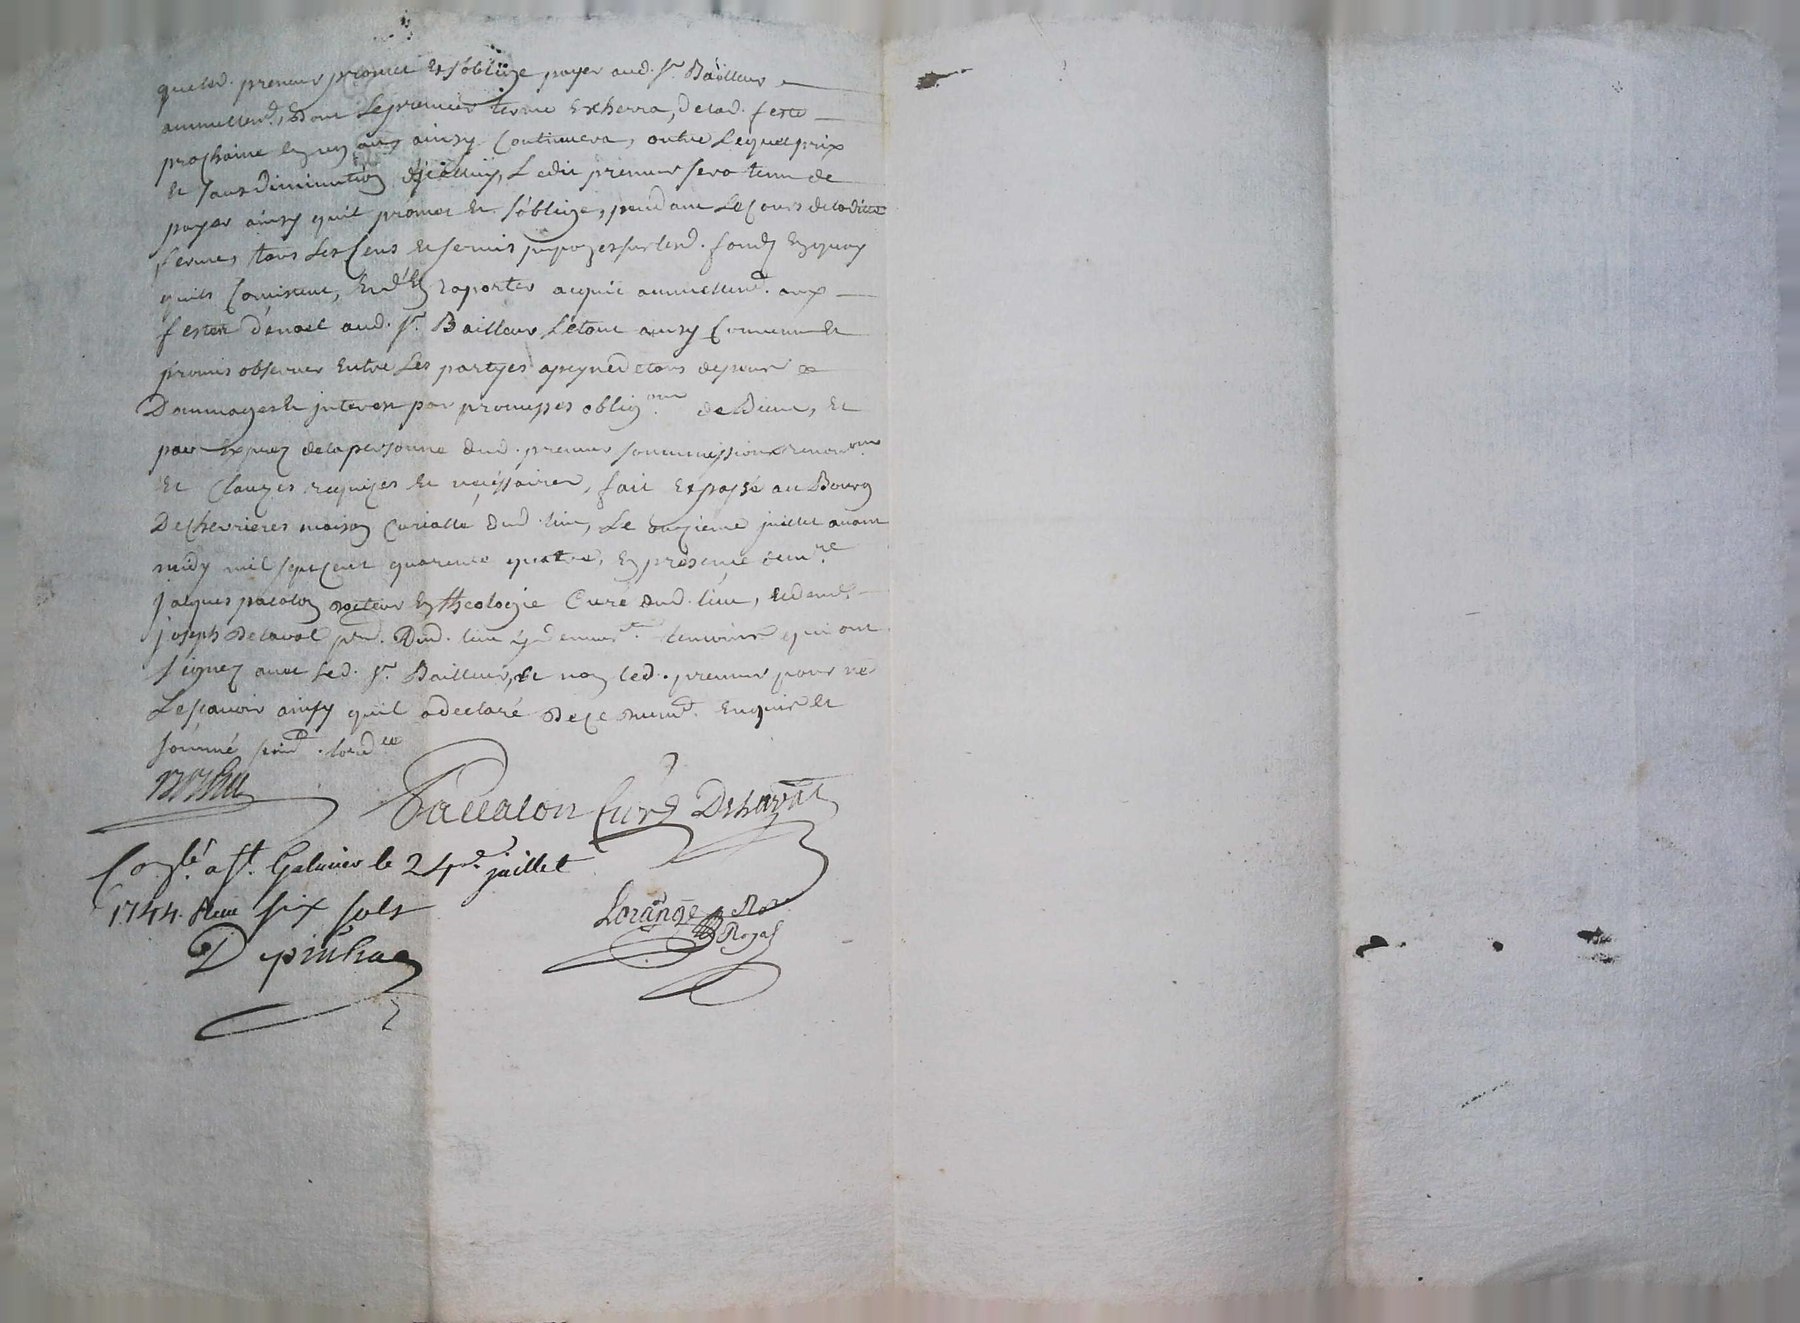 que led. preneur promet et s'oblige payer aud. Sr. Bailleur
annuellemt., dont le premier terme exherra, de lad. feste
prochaine en un an, ainsy continuera, outre lequel prix
et sans diminution d'jcelluy, ledit preneur sera tenu de
payer ainsy quil promet et s'oblige, pendant le cours de laditte
ferme, tous les cens et servis jmpozes sur lesd. fondz en quoy
quils consistent, et d'en raporter acquit annuellemt. aux
festes dénoel aud. Sr. Bailleur, létout ainsy convenu et
promis observer entre les partyes apeyne de tous depens
Dommages et jnterest par promesses obligons. de Biens, et
par exprez de la personne dud. preneur soummissions renonons.
et clauzes requizes et nécéssaires, fait et passé au Bourg
De Chevrieres maison curialle dud. lieu, le onzieme juillet avant
midy mil sept cent quarente quatre, en presence de mre.
jacques pacalon docteur en theologie Curé dud. lieu, et de
joseph Delaval dud. lieu y demeurt. temoins qui ont
signez avec led. Sr. Bailleur, et non led. preneur pour ne
le sçavoir ainsy quil a declaré de ce duemt. enquis et
sommé
Paccalon Curé Delaval
Conslé. a St. Galmier le 24e. juillet
1744. Receu six sols
Lorange Nore
Royal
Depinhac